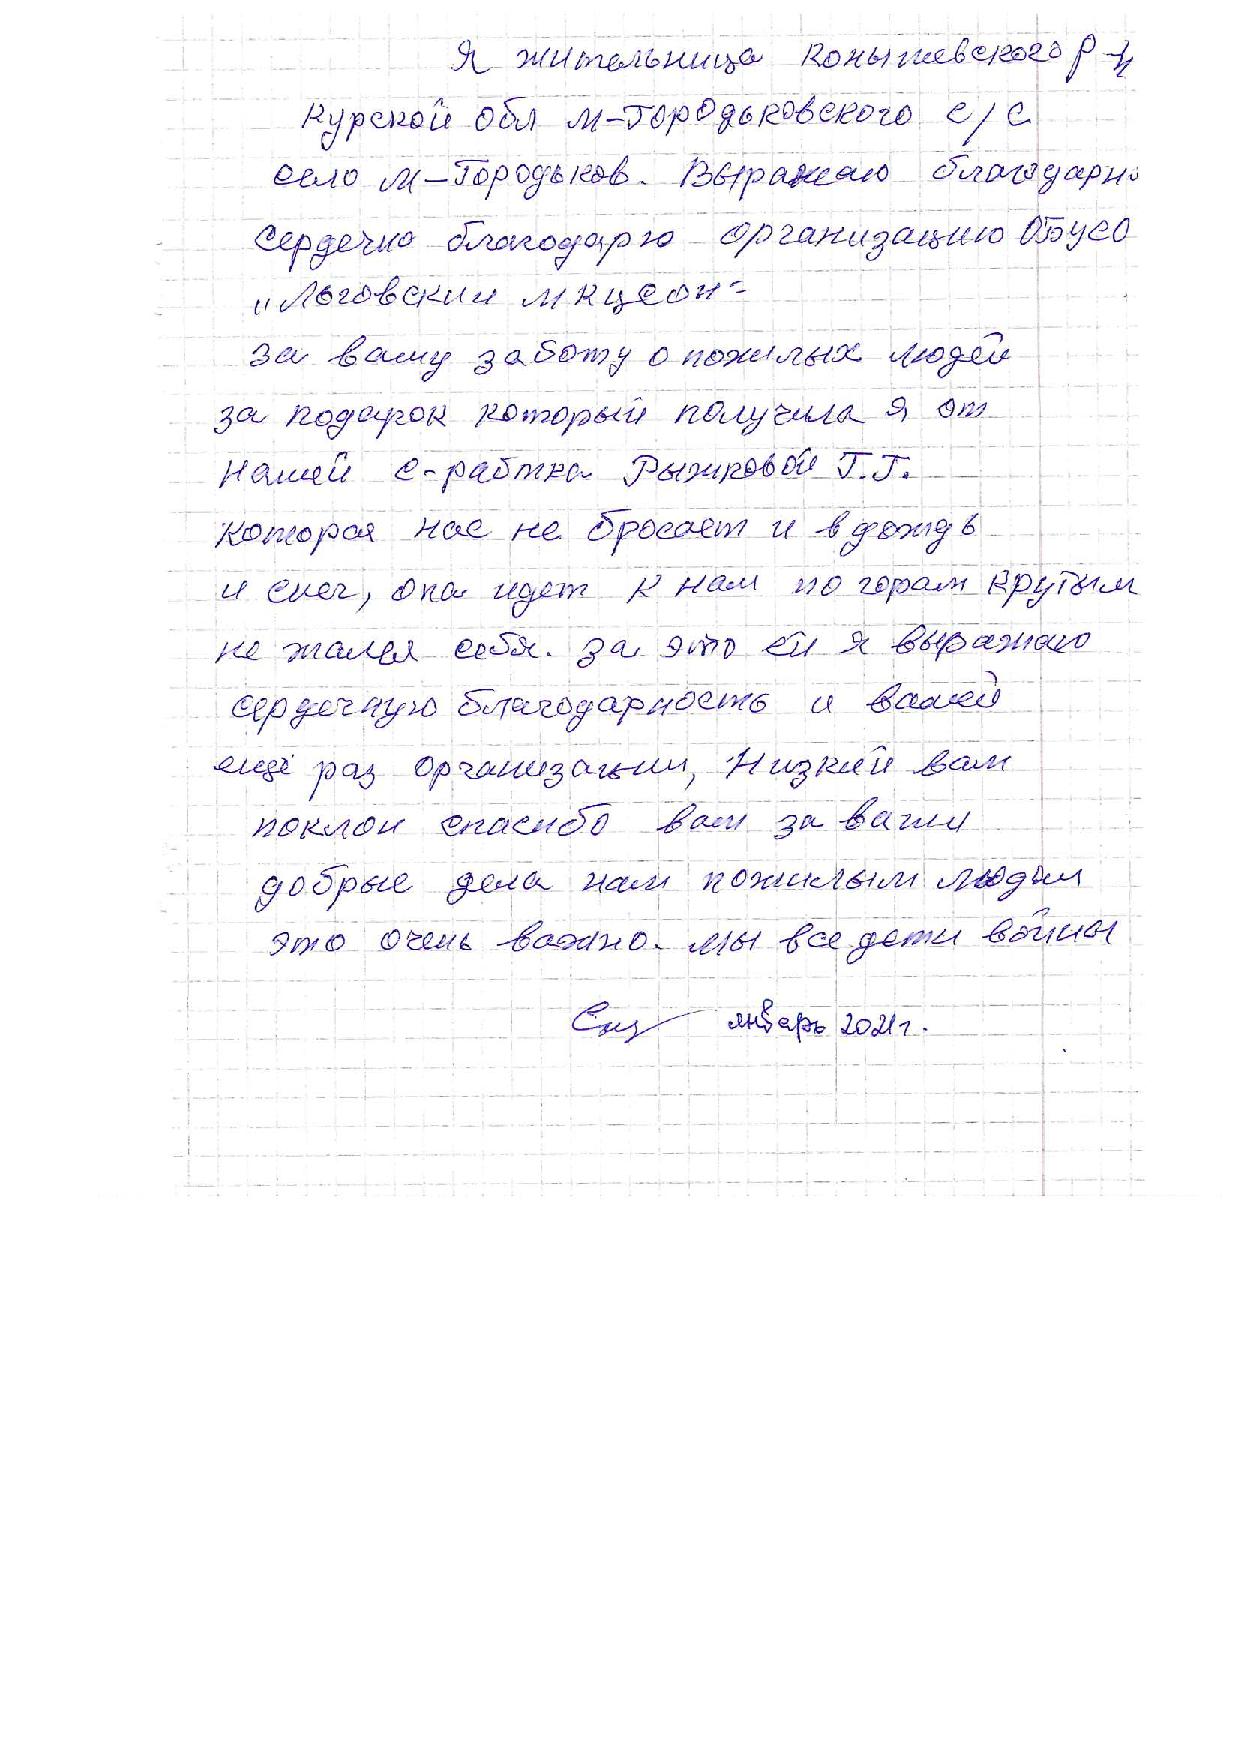 Я жительница Конышевского р-н
Курской обл М-Городьковского с/с
село М-Городьков. Выражаю благодарно
Сердечно благодарю организацию ОБУСО
"Льговский МКЦСОН"
за вашу заботу о пожилых людей
за подарок который получила я от
нашей с-работка Рыжковой Т.Т.
которая нас не бросает и в дождь
и снег, она идет к нам по горам крутым
не жалея себя. За это ей я выражаю
сердечную благодарность и вашей
ещё раз организации, Низкий вам
поклон спасибо вам за ваши
добрые дела нам пожилым людям
это очень важно. Мы все дети войны
январь 2021г.